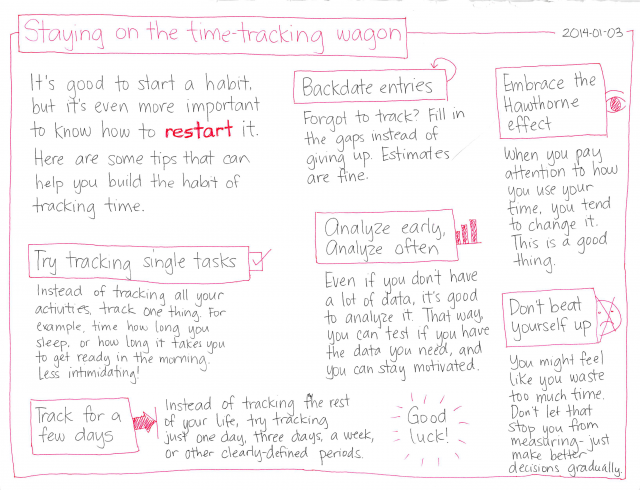 Staying on the time-tracking wagon
2014-01-03
It's good to start a habit,
but it's even more important
to know how to restart it.
Here are some tips that can
help you build the habit of
tracking time.
Try tracking single tasks
Instead of tracking all your
activities, track one thing. For
example, time how long you
sleep, or how long it takes you
to get ready in the morning.
Less intimidating!
Track for a
few days
Instead of tracking the rest
of your life, try tracking
just one day, three days, a week,
or other clearly-defined periods.
Backdate entries
Forgot to track? Fill in
the gaps instead of
giving up. Estimates
are fine.
Analyze early,
Analyze often
Even if you don't have
a lot of data, it's good
to analyze it. That way,
you can test if you have
the data you need, and
you can stay motivated.
Good
luck!
Embrace the
Hawthorne
effect
When you pay
attention to how
you use your
time, you tend
to change it.
This is a good
thing.
Don't beat
yourself up
You might feel
like you waste
too much time.
Don't let that
stop you from
measuring-just
make better
decisions gradually.